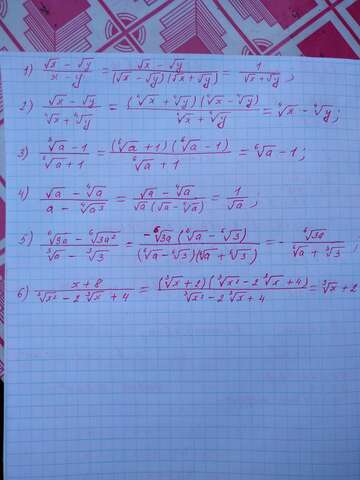 1) \frac{\sqrt{x} - \sqrt{y}}{x - y} = \frac{\sqrt{x} - \sqrt{y}}{(\sqrt{x} - \sqrt{y})(\sqrt{x} + \sqrt{y})} = \frac{1}{\sqrt{x} + \sqrt{y}};
2) \frac{\sqrt{x} - \sqrt{y}}{\sqrt[4]{x} + \sqrt[4]{y}} = \frac{(\sqrt[4]{x} + \sqrt[4]{y})(\sqrt[4]{x} - \sqrt[4]{y})}{\sqrt[4]{x} + \sqrt[4]{y}} = \sqrt[4]{x} - \sqrt[4]{y};
3) \frac{\sqrt[3]{a} - 1}{\sqrt[6]{a} + 1} = \frac{(\sqrt[6]{a} + 1)(\sqrt[6]{a} - 1)}{\sqrt[6]{a} + 1} = \sqrt[6]{a} - 1;
4) \frac{\sqrt{a} - \sqrt[4]{a}}{a - \sqrt[4]{a^3}} = \frac{\sqrt{a} - \sqrt[4]{a}}{\sqrt{a}(\sqrt{a} - \sqrt[4]{a})} = \frac{1}{\sqrt{a}};
5) \frac{\sqrt[6]{9a} - \sqrt[6]{3a^2}}{\sqrt[3]{a} - \sqrt[3]{3}} = \frac{-\sqrt[6]{3a}(\sqrt[6]{a} - \sqrt[6]{3})}{(\sqrt[6]{a} - \sqrt[6]{3})(\sqrt[6]{a} + \sqrt[6]{3})} = -\frac{\sqrt[6]{3a}}{\sqrt[6]{a} + \sqrt[6]{3}};
6) \frac{x + 8}{\sqrt[3]{x^2} - 2\sqrt[3]{x} + 4} = \frac{(\sqrt[3]{x} + 2)(\sqrt[3]{x^2} - 2\sqrt[3]{x} + 4)}{\sqrt[3]{x^2} - 2\sqrt[3]{x} + 4} = \sqrt[3]{x} + 2